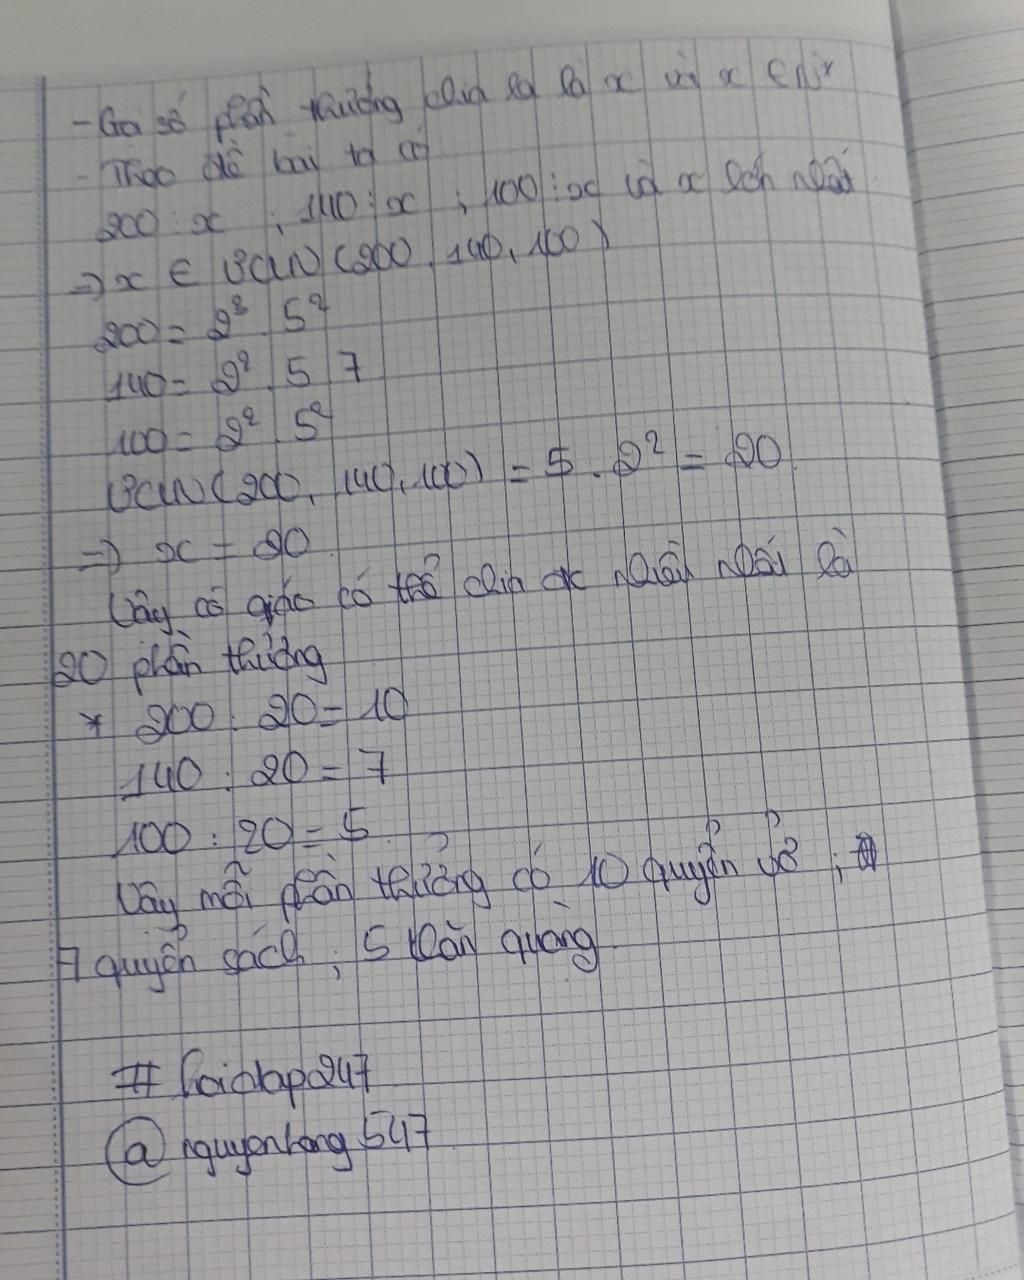 - Gọi số phần thưởng chia ra là x và x ∈ N*
- Theo đề bài ta có
200 : x ; 140 : x ; 100 : x và x lớn nhất
=> x ∈ ƯCLN (200, 140, 100)
200 = 2³ . 5²
140 = 2² . 5 7
100 = 2² . 5²
ƯCLN (200, 140, 100) = 5 . 2² = 20
=> x = 20
Vậy cô giáo có thể chia nhiều nhất là
20 phần thưởng
* 200 : 20 = 10
140 : 20 = 7
100 : 20 = 5
Vậy mỗi phần thưởng có 10 quyển vở ;
7 quyển sách ; 5 khăn quàng
# hoidap247
@ nguyenhong547